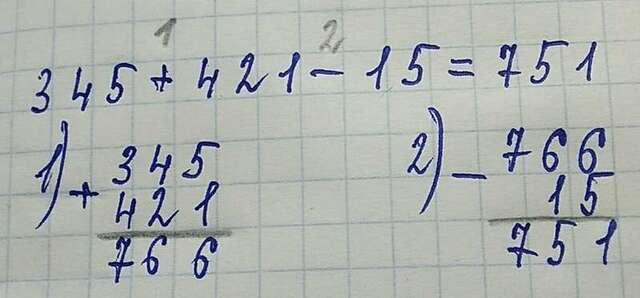 1 2
345 + 421 - 15 = 751
1) + 345
421
766
2) - 766
15
751